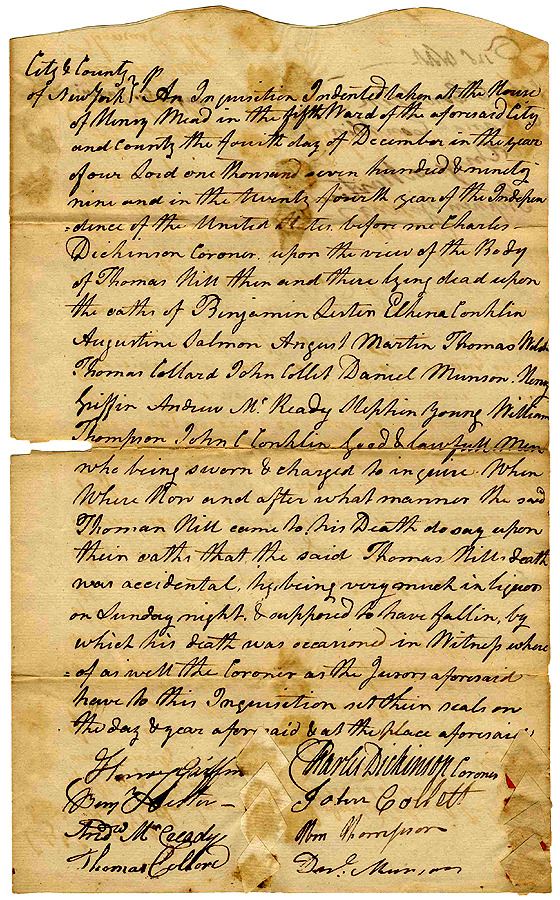 City & County
of New York } ss An Inquisition Indented taken at the House
of Henry Mead in the fifth Ward of the aforesaid City
and County the fourth day of December in the year
of our Lord one thousand seven hundred & ninety
nine and in the twenty fourth year of the Indepen
=dence of the United States, before me Charles
Dickinson Coroner. upon the view of the Body
of Thomas Hill then and there lying dead upon
the oaths of Benjamin Elkina Conklin
Augustine Salmon Angus Martin Thomas
Thomas Collard John Collet Daniel Munson. Henry
Griffin Andrew Mc Ready Stephen Young William
Thompson John C Conklin Good & lawfull Men
who being sworn & charged to inquire When
Where How and after what manner the said
Thomas Hill came to his Death do say upon
their oaths that the said Thomas Hills death
was accidental, he being very much in liquor
on Sunday night. & supposed to have fallin, by
which his death was occasioned in Witness where
=of as well the Coroner as the Jurors aforesaid
have to this Inquisition set their seals on
the day & year aforesaid & at the place aforesaid
Henry Griffin Charles Dickinson Coroner
Benj John Collett
Andw McCready Wm Thompson
Thomas Collard Danl Munson